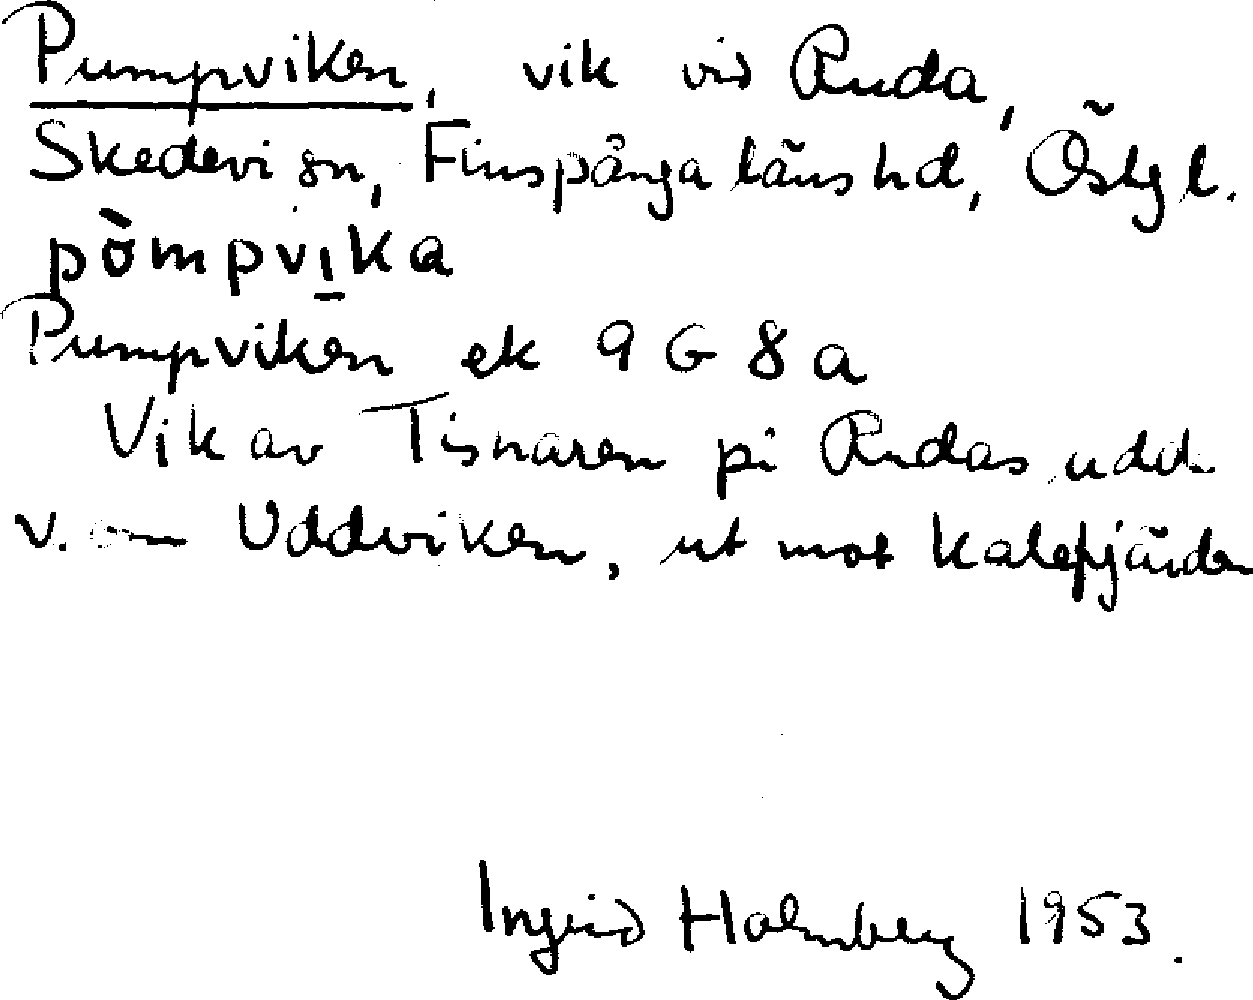 Pumpviken, vik vid Ruda,
Skedevi sn, Finspånga läns hd, Östgl.
pòmpvika
Pumpviken ek 9G8a
Vik av Tisnaren på Rudas udde
v. om Uddviken, ut mot Kalefjärden
Ingrid Holmberg 1953.